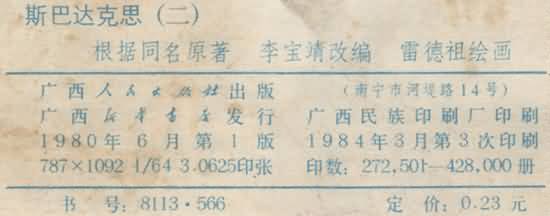 斯巴达克思(二)
根据同名原著 李宝靖改编 雷德祖绘画
广西人民出版社出版 (南宁市河堤路14号)
广西新华书店发行 广西民族印刷厂印刷
1980年6月第1版 1984年3月第3次印刷
787×1092 1/64 3.0625印张 印数:272,501—428,000册
书号:8113·566 定价:0.23元